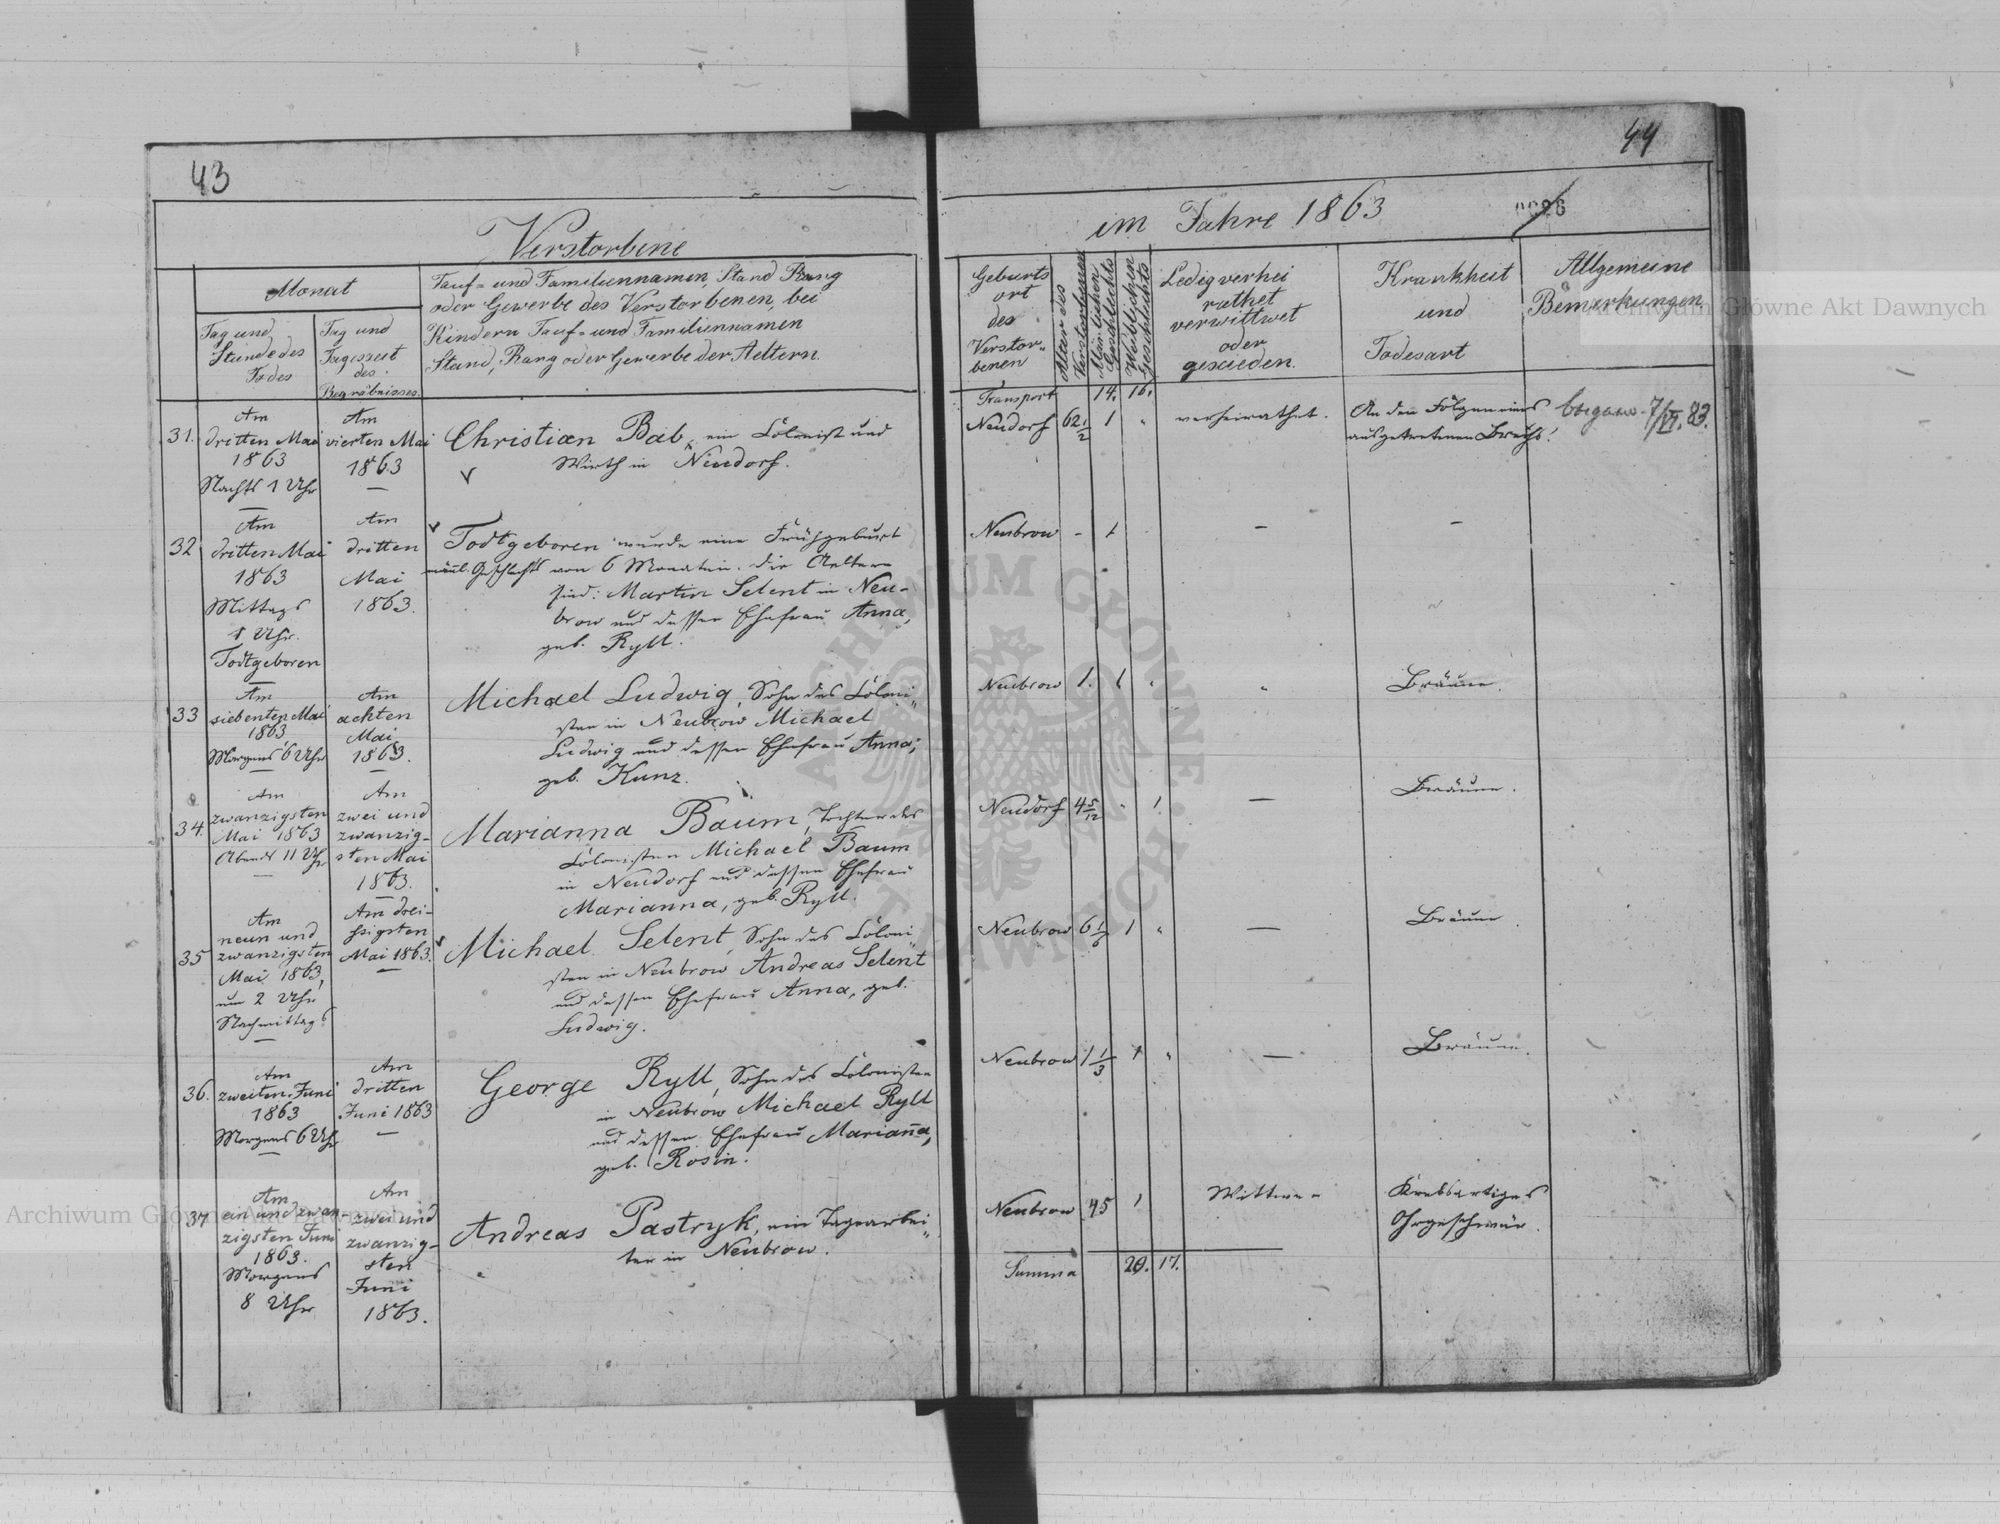 43
Verstorbene
Monat
Tag und
Stunde des
Todes
Tag und
Tageszeit
des
Begräbnisses.
Tauf- und Familiennamen, Stand Rang
oder Gewerbe des Verstorbenen, bei
Kindern Tauf- und Familiennamen
Stand, Rang oder Gewerbe der Aeltern.
31.
Am
dritten Mai
1863
Nachts 1 Uhr
Am
vierten Mai
1863
Christian Bab, ein Colonist und
Wirth in Neudorf.
32
Am
dritten Mai
1863
Mittags
1 Uhr.
Todtgeboren
Am
dritten
Mai
1863.
Todtgeboren wurde eine Frühgeburt
männl. Geschlechts von 6 Monaten. Die Aeltern
sind: Martin Selent in Neu-
brow und dessen Ehefrau Anna,
geb. Ryll.
33
Am
siebenten Mai
1863
Morgens 6 Uhr
Am
achten
Mai
1863.
Michael Ludwig, Sohn des Coloni-
sten in Neubrow Michael
Ludwig und dessen Ehefrau Anna,
geb. Kunz.
34.
Am
zwanzigsten
Mai 1863
Abends 11 Uhr
Am
zwei und
zwanzig-
sten Mai
1863.
Marianna Baum, Tochter des
Colonisten Michael Baum
in Neudorf und dessen Ehefrau
Marianna, geb. Ryll.
35
Am
neun und
zwanzigsten
Mai 1863,
um 2 Uhr
Nachmittags
Am drei-
ssigsten
Mai 1863.
Michael Selent, Sohn des Coloni-
sten in Neubrow Andreas Selent
und dessen Ehefrau Anna, geb.
Ludwig.
36.
Am
zweiten Juni
1863
Morgens 6 Uhr
Am
dritten
Juni 1863
George Ryll, Sohn des Colonisten
in Neubrow Michael Ryll
und dessen Ehefrau Marianna,
geb. Rosin.
37
Am
ein und zwan-
zigsten Juni
1863.
Morgens
8 Uhr
Am
zwei und
zwanzig-
sten
Juni
1863.
Andreas Pastryk, ein Tagearbei-
ter in Neubrow.
44
im Jahre 1863
Geburts
ort
des
Verstor-
benen
Alter des
Verstorbenen
Männlichen
Geschlechts
Weiblichen
Geschlechts
Ledig verhei
rathet
verwittwet
oder
gescieden.
Krankheit
und
Todesart
Allgemeine
Bemerkungen
Transport 14. 16.
Neudorf 62 1/2 1 " verheirathet. An den Folgen eines
ausgetretenen Bruchs.
выдано 7/VI. 83.
Neubrow - 1 — —
Neubrow 1. 1 " " Bräune.
Neudorf 4 5/12 " 1 — Bräune.
Neubrow 6 1/6 1 " — Bräune.
Neubrow 1 1/3 1 " — Bräune.
Neubrow 45 1 Wittwer Krebsartiges
Ohrgeschwür.
Summa 20. 17.
Archiwum Główne Akt Dawnych
Archiwum Główne Akt Dawnych
ARCHIWUM GŁÓWNE AKT DAWNYCH